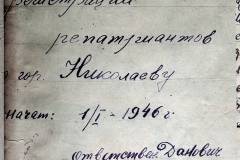 регистрации
репатриантов
гор. Николаеву
Начат: 1/I - 1946 г.
Ответствен. Данович